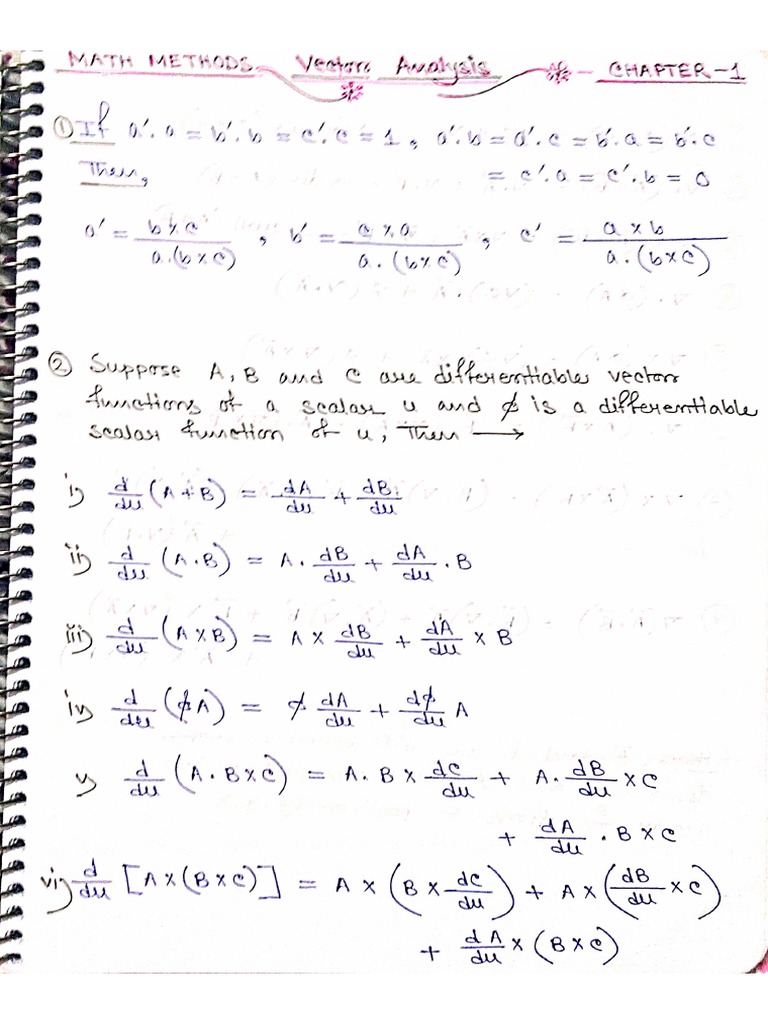 MATH METHODS Vector Analysis CHAPTER-1
① If a'.a = b'.b = c'.c = 1, a'.b = a'.c = b'.a = b'.c
Then, = c'.a = c'.b = 0
a' = b×c / a.(b×c) , b' = c×a / a.(b×c) , c' = a×b / a.(b×c)
② Suppose A, B and C are differentiable vector
functions of a scalar u and ϕ is a differentiable
scalar function of u, Then →
i) d/du (A+B) = dA/du + dB/du
ii) d/du (A.B) = A. dB/du + dA/du .B
iii) d/du (A×B) = A× dB/du + dA/du ×B
iv) d/du (ϕA) = ϕ dA/du + dϕ/du A
v) d/du (A.B×C) = A.B× dC/du + A. dB/du ×C
+ dA/du .B×C
vi) d/du [A×(B×C)] = A×(B× dC/du) + A×(dB/du ×C)
+ dA/du ×(B×C)